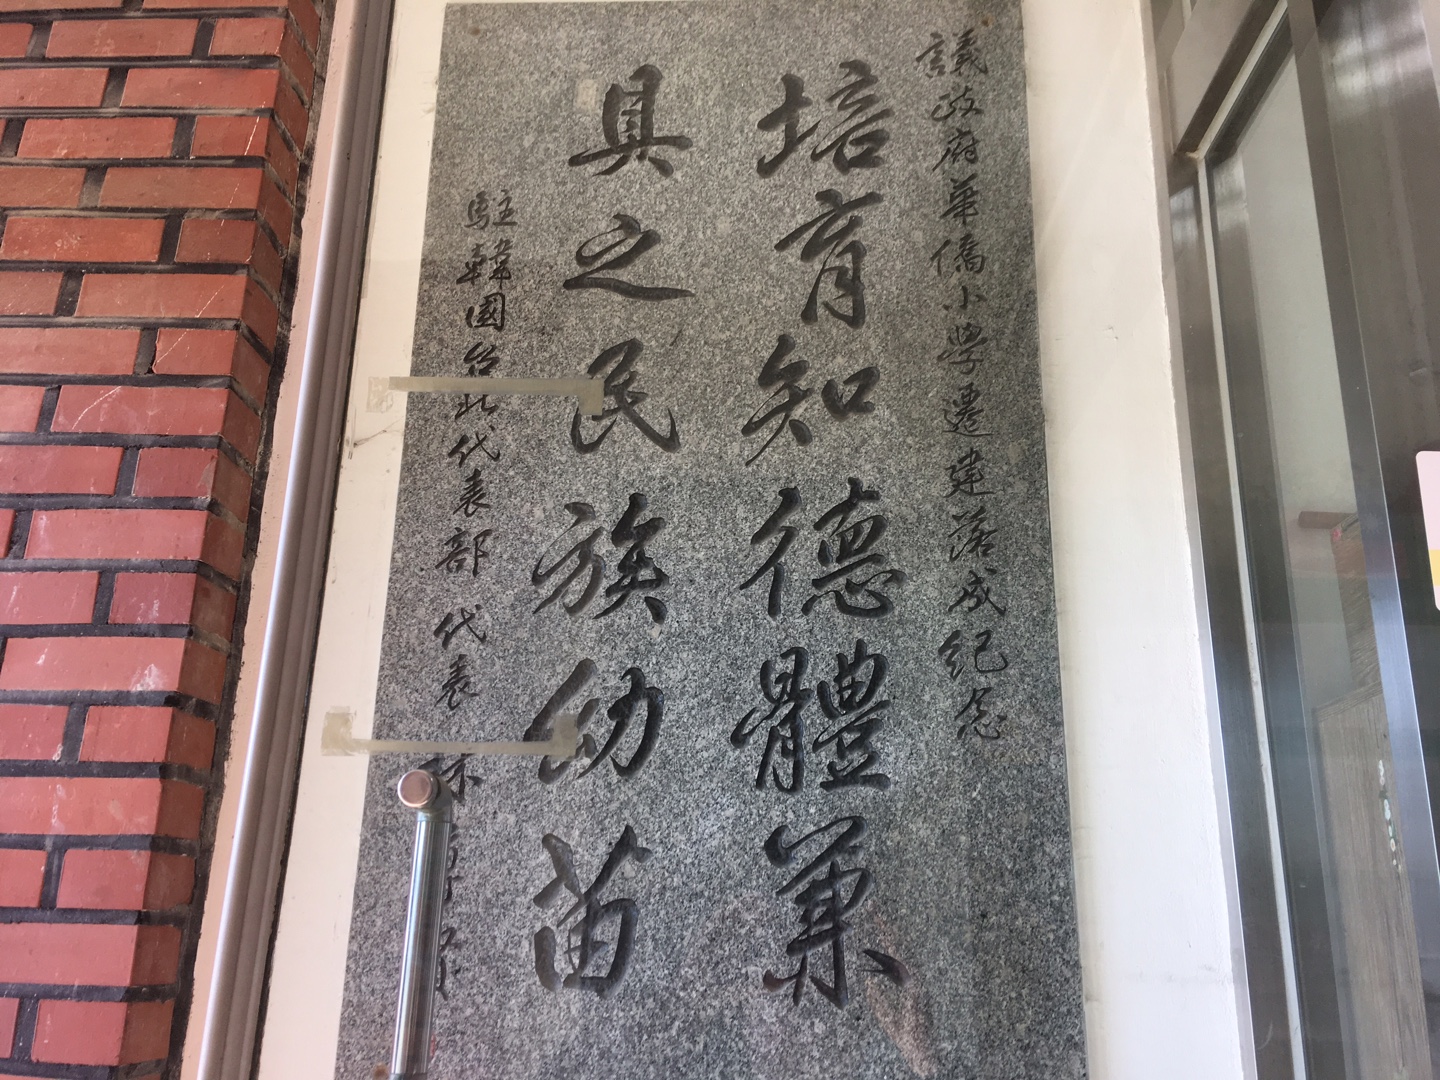 議政府華僑小學遷建落成紀念
培育知德體兼
具之民族幼苗
駐韓國台北代表部 代表 林